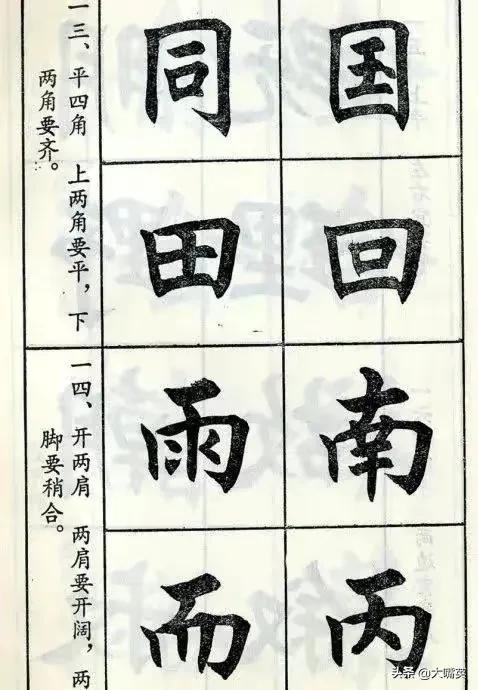 一三、平四角 上两角要平，下
两角要齐。
同 国
田 回
一四、开两肩 两肩要开阔，两
脚要稍合。
雨 南
而 丙
头条 @大嘴葵